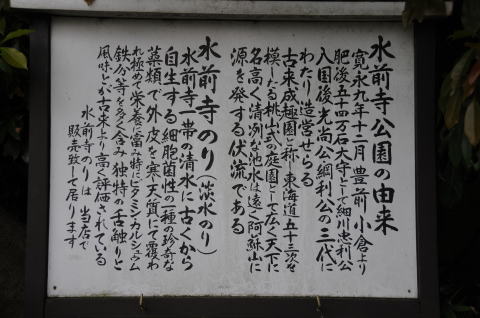 水前寺公園の由来
寛永九年十二月豊前小倉より
肥後五十四万石大守として細川忠利公
入国後光尚公綱利公の三代に
わたり造営せらる
古来成趣園と称へ東海道五十三次を
模したる桃山式の庭園として広く天下に
名高く清冽な池水は遠く阿蘇山に
源を発する伏流である
水前寺のり(淡水のり)
水前寺一帯の清水に古くから
自生する細胞菌性の一種の珍奇な
藻類で外皮を寒天質にて覆わ
れ極めて栄養に富み特にビタミン、カルシュウム
鉄分等を多く含み独特の舌触りと
風味とが古来より高く評価されている
水前寺のりは当店で
販売致して居ります